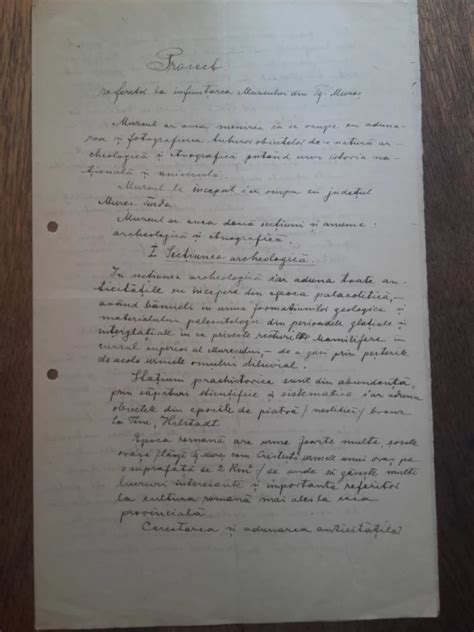 Proiect
referitor la infiintarea Muzeului din Tg. Mureș
Muzeul ar avea menirea să se ocupe cu aduna-
rea și fotografierea tuturor obiectelor de o natură ar-
cheologică și etnografică putând servi istoria na-
țională și universală.
Muzeul la început s'ar ocupa cu județul
Mureș-Turda.
Muzeul ar avea două secțiuni și anume:
archeologică și etnografică.
I Secțiunea archeologică.
In sectiunea archeologică s'ar aduna toate an-
ticitățile cu incepere din epoca palaeolitică,
având bănueli in urma formațiunilor geologice și
materialului paleontologic din perioadele glaciale și
interglațiale in ce privește resturile Mamiferelor in
cursul superior al Mureșului, de a găsi prin peșterile
de acolo urmele omului diluvial.
Stațiuni praehistorice sunt din abundentă,
prin săpături științifice și sistematice s'ar aduna
obiectele din epocile de piatră / neolitică / bronz
la Tène, Halstadt.
Epoca romană are urme foarte multe,
orașe lângă Tg Mureș cum Cristesti urmele unui oraș pe
o suprafață de 2 Km² / se unde să găsește multe
lucruri interesante și importante referitor
la cultura romană mai ales la
provincială
Cercetarea și adunarea anticităților